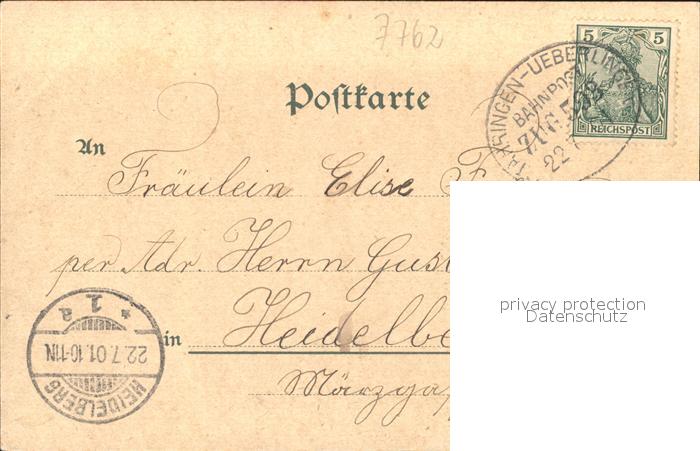 7762
5 5
REICHSPOST
UEBERLINGEN
BAHNPOST
ZUG
22
Postkarte
An
Fräulein Elise F
per Adr. Herrn Gust
in Heidelbe
Märzga
HEIDELBERG
22.7.01.10-11N
* 1 a
privacy protection
Datenschutz